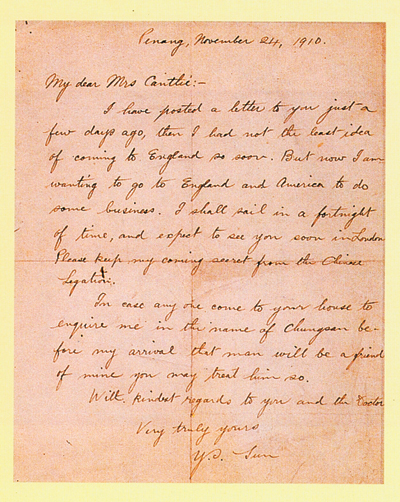 Penang, November 24, 1910.
My dear Mrs Cantlie:-
I have posted a letter to you just a
few days ago, then I had not the least idea
of coming to England so soon. But now I am
wanting to go to England and America to do
some business. I shall sail in a fortnight
of time, and expect to see you soon in London
Please keep my coming secret from the Chinese
Legation.
In case any one come to your house to
enquire me in the name of Chungsan be-
fore my arrival that man will be a friend
of mine you may treat him so.
With kindest regards to you and the Doctor
Very truly yours
Y.S. Sun